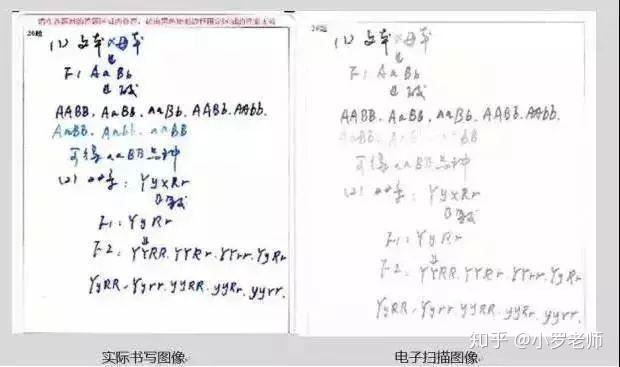 请在各题目的答题区域内作答，超出黑色矩形边框限定区域的答案无效
26题
(1) 父本×母本
F1 AaBb
AABB. AaBB. aaBb. AABb. AAbb.
AaBB. Aabb. aaBB
可得aaBB品种
(2) YyxRr
F1: YyRr
F2: YYRR. YYRr. YYrr. YyRr
YyRR. Yyrr. yyRR. yyRr. yyrr.
实际书写图像
26题
(1) 父本×母本
F1 AaBb
AABB. AaBB. aaBb. AABb. AAbb.
可得aaBB品种
(2) YyxRr
F1: YyRr
F2: YYRR. YYRr. YYrr. YyRr
YyRR. Yyrr. yyRR. yyRr. yyrr.
电子扫描图像
知乎 @小罗老师